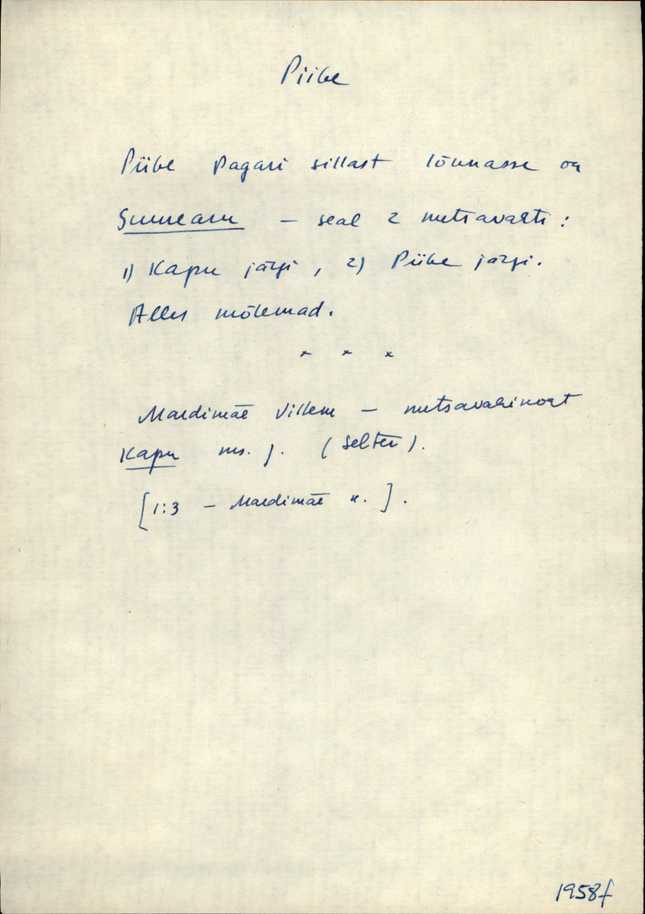 Piibe
Piibe Pagari sillast lõunasse on
Suurearu – seal 2 metsavahti:
1) Kapu järgi, 2) Piibe järgi.
Alles mõlemad.
x x x
Mardimäe Villem – metsavahinort
Kapu ms. j. (Selter).
[1:3 – Mardimäe k.].
1958f